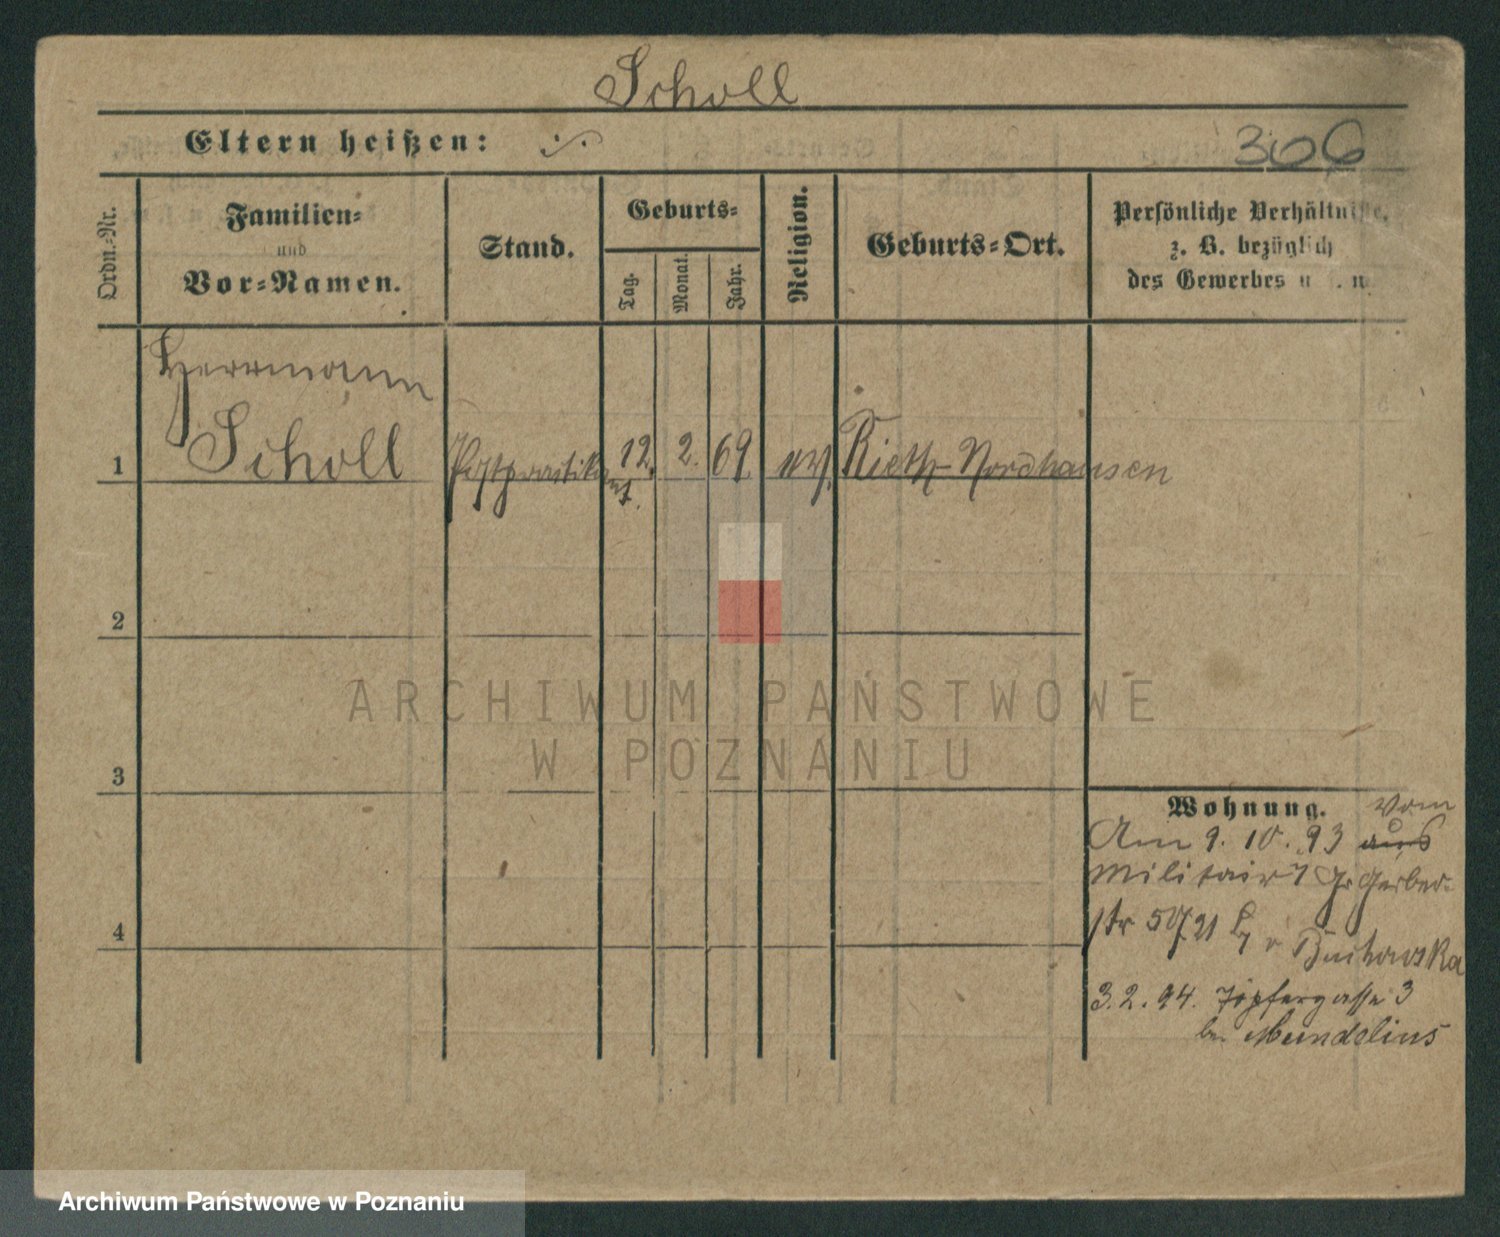 Scholl
Eltern heißen: ./.
306
Ordn.-Nr.
Familien-
und
Vor-Namen.
Stand.
Geburts-
Tag.
Monat.
Jahr.
Religion.
Geburts-Ort.
Persönliche Verhältnisse,
z. B. bezüglich
des Gewerbes u. s. w.
Herrmann
1 Scholl Postpraktikant. 12. 2. 69 ev. Rieth-Nordhausen
2
3
4
Wohnung. vom
Am 9. 10. 93 aus
Militair Gr Gerber-
str 50
3. 2. 94. Töpfergasse 3
bei Mundelius
ARCHIWUM PAŃSTWOWE
W POZNANIU
Archiwum Państwowe w Poznaniu